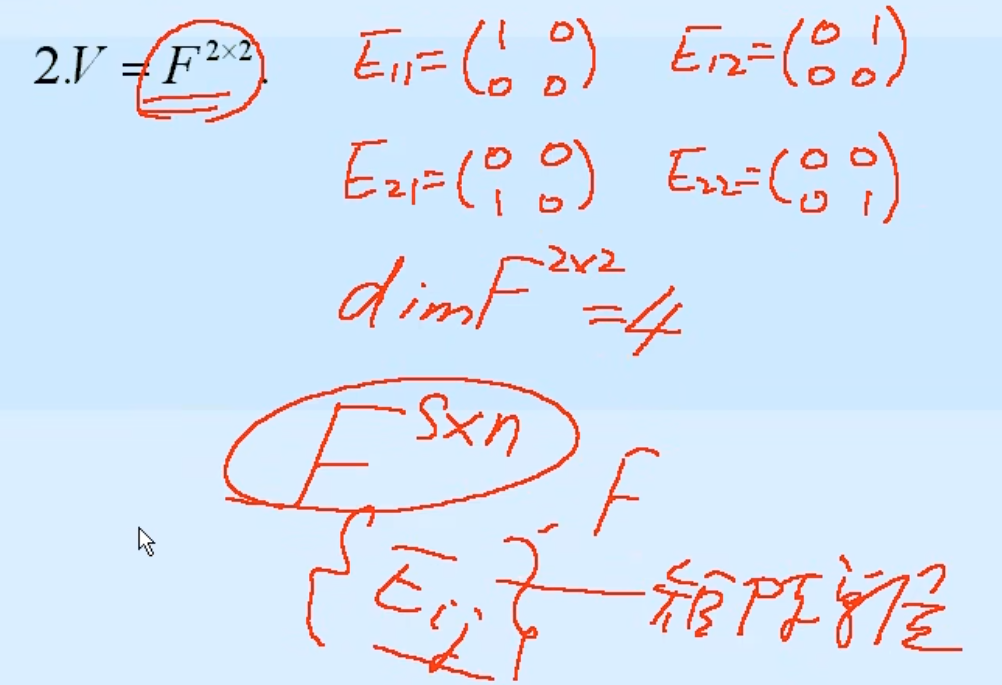 2.V = F^{2×2}. E₁₁ = (1 0; 0 0) E₁₂ = (0 1; 0 0)
E₂₁ = (0 0; 1 0) E₂₂ = (0 0; 0 1)
dim F^{2×2} = 4
F^{s×n} F
{E_{ij}} — 矩阵单位